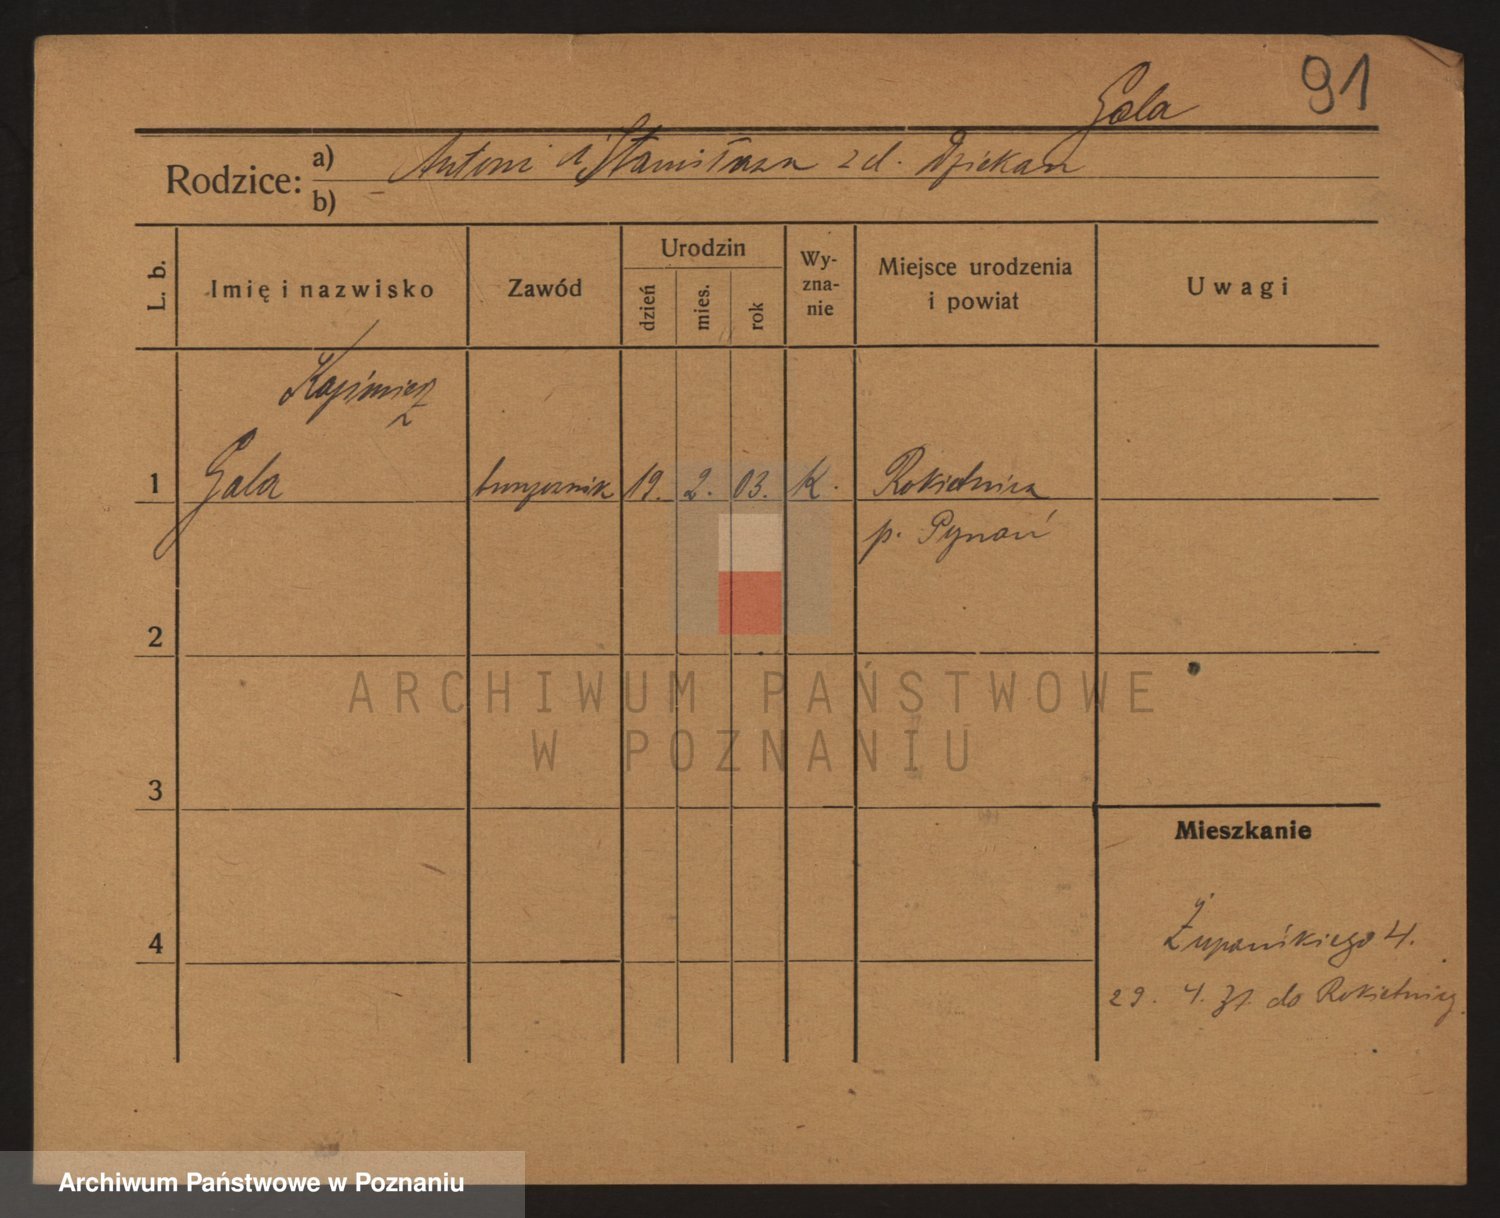 91
Gala
Rodzice: a) Antoni i Stanisława zd. Dziekan
b)
L. b.
Imię i nazwisko
Zawód
Urodzin
dzień
mies.
rok
Wy-
zna-
nie
Miejsce urodzenia
i powiat
Uwagi
Kazimierz
1 Gala 19. 2. 03. K. Rokietnica
p. Poznań
2
3
4
Mieszkanie
Żupańskiego 4.
29. 4. 31. do Rokietnicy.
ARCHIWUM PAŃSTWOWE
W POZNANIU
Archiwum Państwowe w Poznaniu